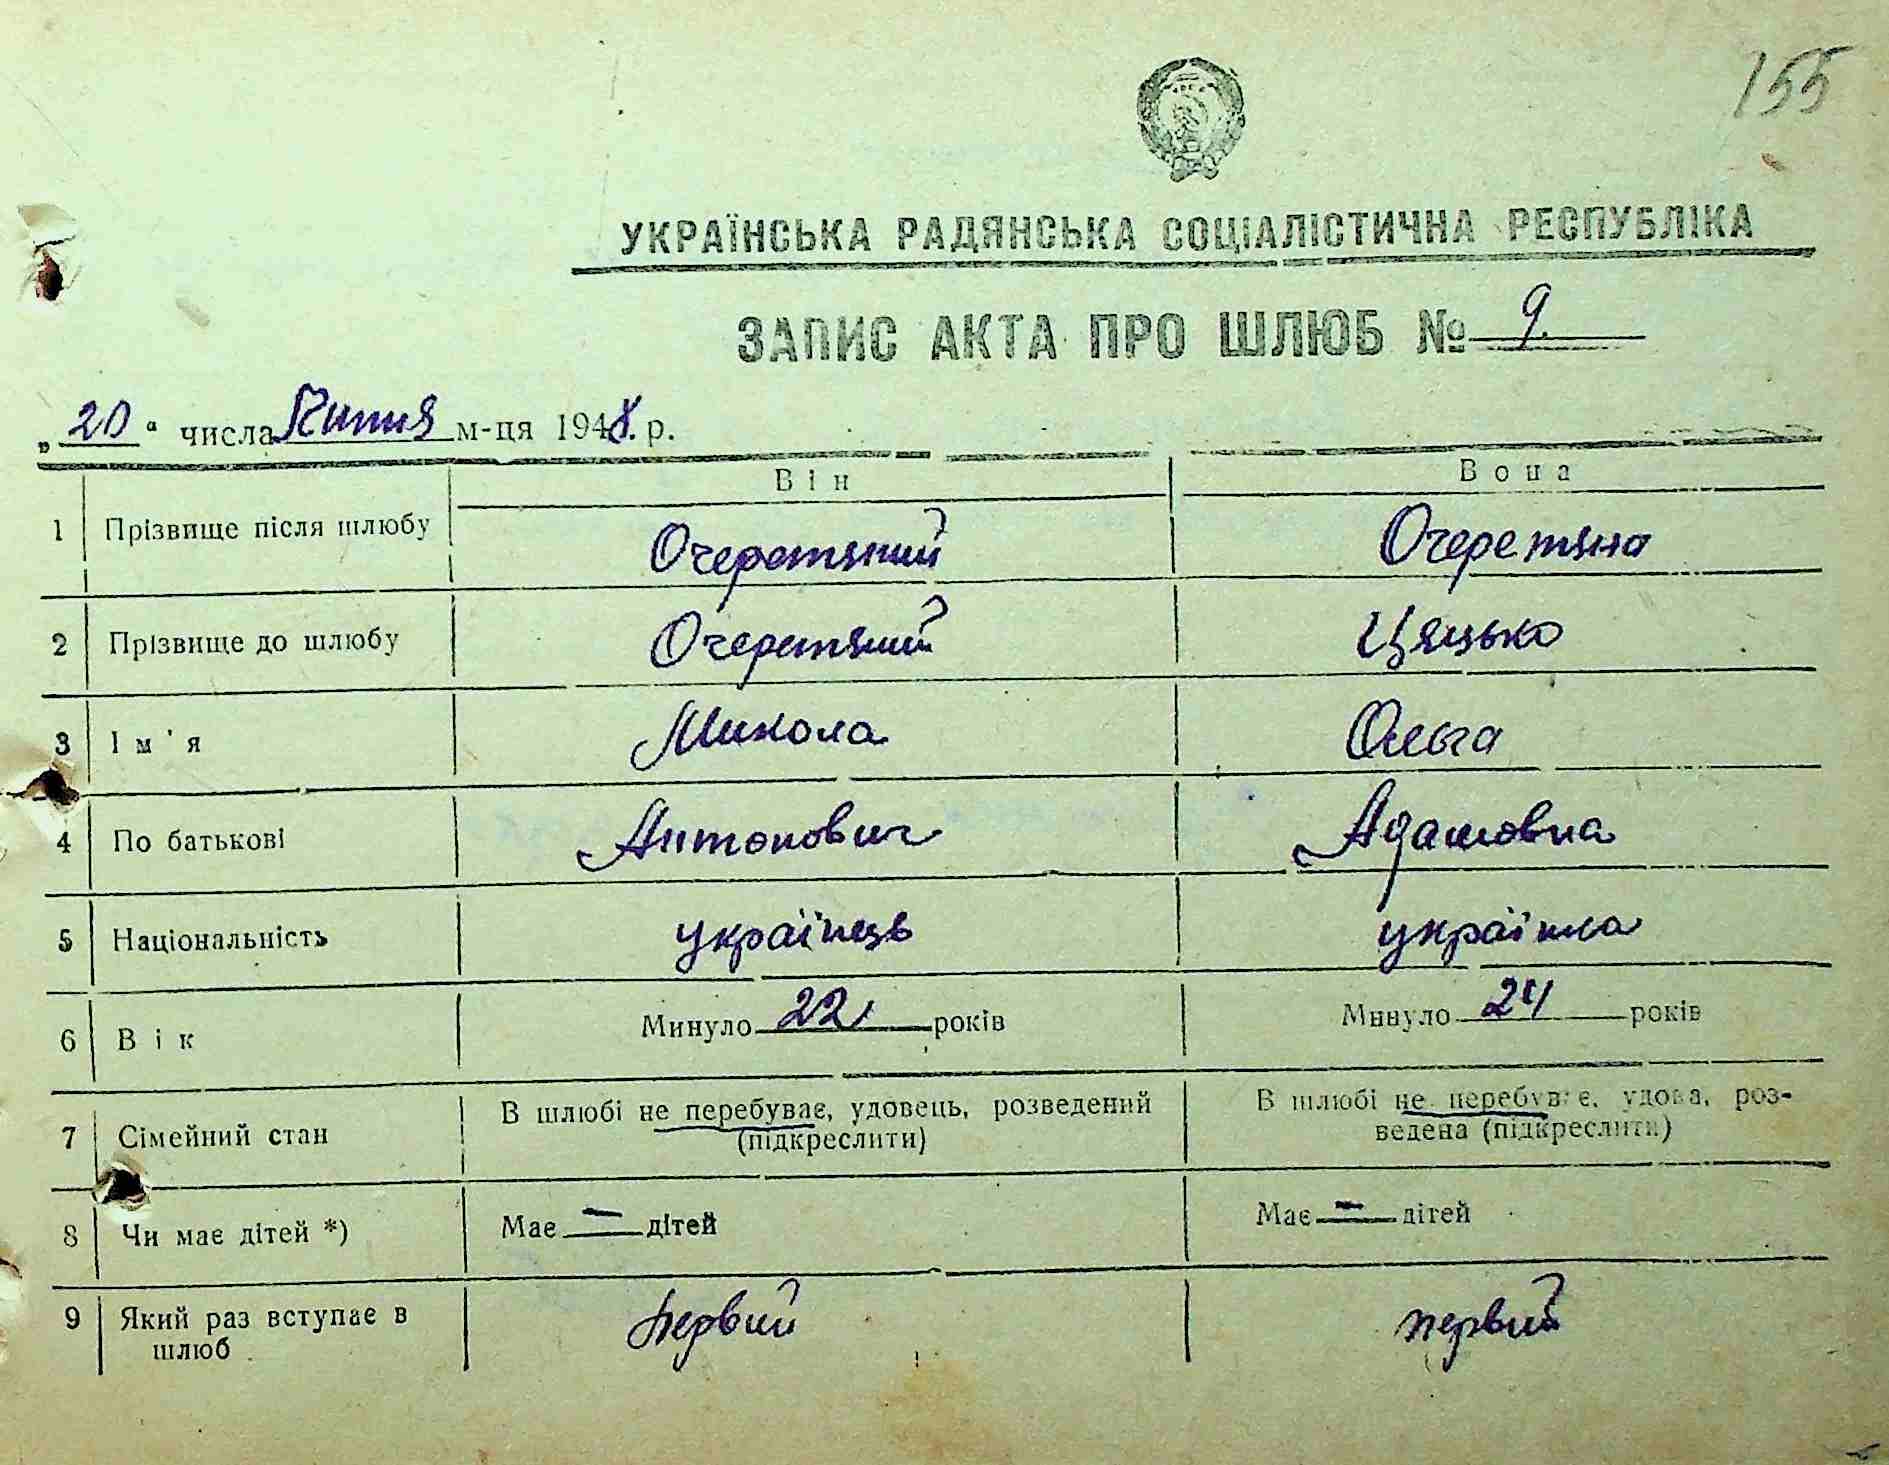 155
УКРАЇНСЬКА РАДЯНСЬКА СОЦІАЛІСТИЧНА РЕСПУБЛІКА
ЗАПИС АКТА ПРО ШЛЮБ № 9.
„20“ числа Липня м-ця 1948. р.
Він Вона
1 Прізвище після шлюбу Очеретяний Очеретяна
2 Прізвище до шлюбу Очеретяний Цяцько
3 Ім'я Микола Ольга
4 По батькові Антонович Адамовна
5 Національність українець українка
6 Вік Минуло 22 років Минуло 24 років
7 Сімейний стан В шлюбі не перебуває, удовець, розведений (підкреслити) В шлюбі не перебуває, удова, роз-
ведена (підкреслити)
8 Чи має дітей *) Має — дітей Має — дітей
9 Який раз вступає в первий первий
шлюб